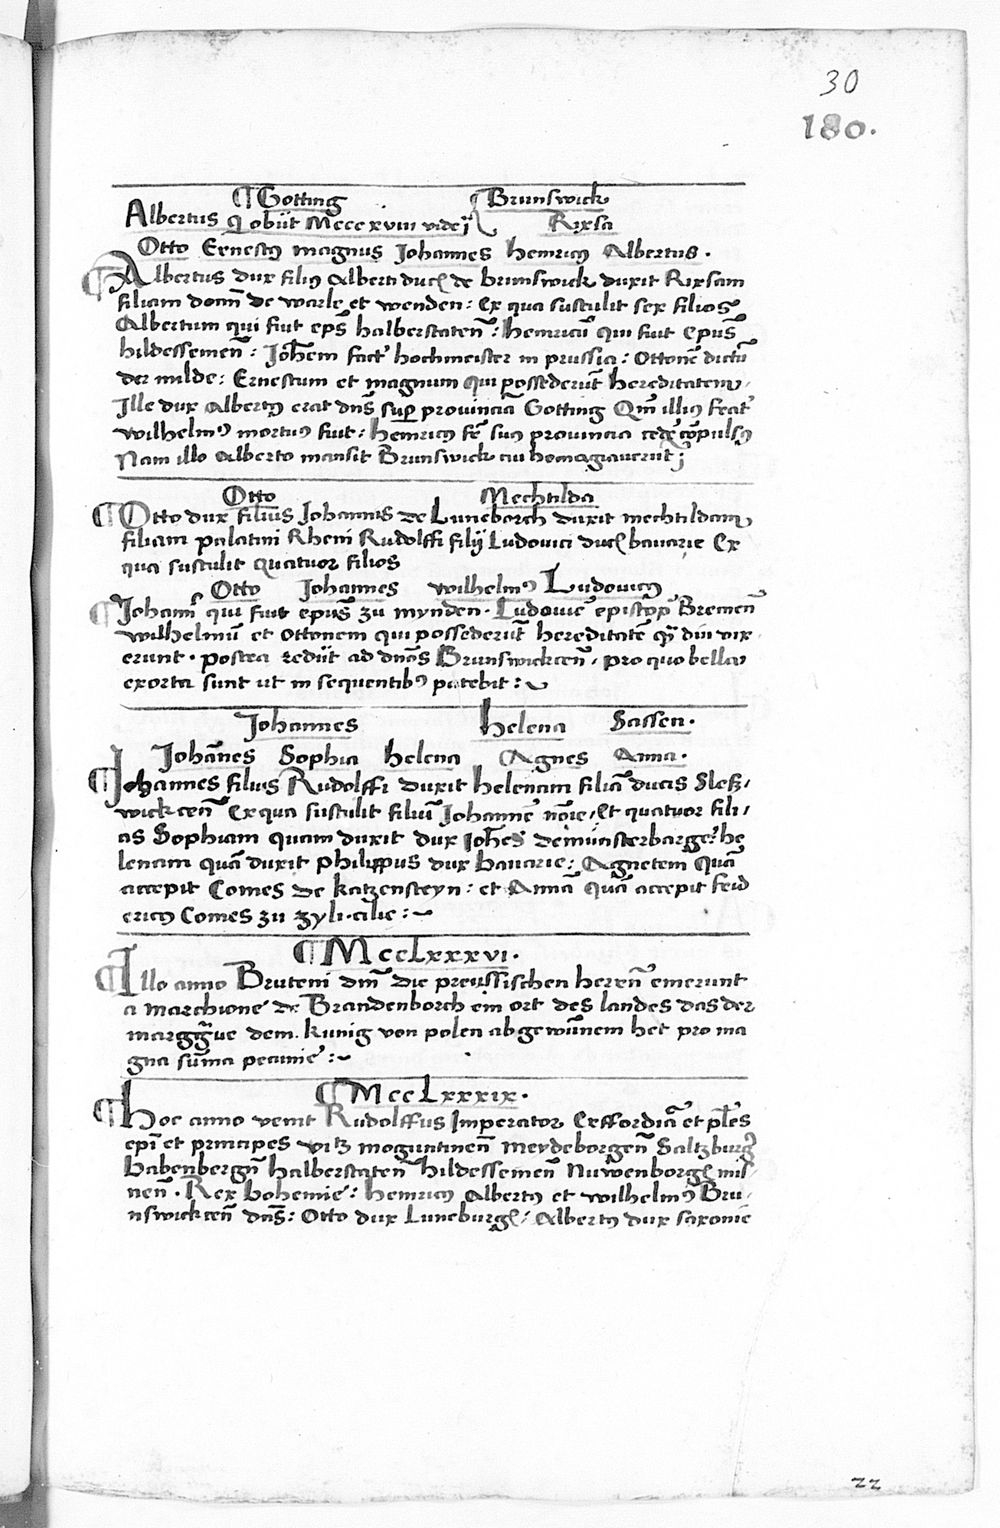 30
180.
¶ Gotting Brunswick
Albertus qͥ obiit Mccc xviii vide Rixsa
Otto Ernestꝰ magnus Johannes Henricꝰ Albertus.
¶ Albertus dux filiꝰ Alberti ducꝭ de brunswick duxit Rixsam
filiam domī de warle et wenden: Ex qua sustulit sex filios
Albertum qui fuit ep̄s halberstateñ: Henricū qui fuit epūs
hildessemeñ: Joh̄em fact' hochmeister in prussia: Ottonē dictū
der milde: Ernestum et magnum qui possederūt hereditatem,
Ille dux Albertꝰ erat dn̄s suꝑ provinciā Gotting Qm̄ illiꝰ
wilhelmꝰ mortuꝰ fuit: Henricꝰ suꝰ provincia
Nam illo Alberto mansit Brunswick cui homagiaverūt;
Otto Mechtilda
¶ Otto dux filius Johannis de Luneborch duxit mechtildam,
filiam palatini Rheni Rudolffi filij Ludovici ducꝭ bavarie Ex
qua sustulit quatuor filios
Otto Johannes wilhelmꝰ Ludovicꝰ
¶ Johanē qui fuit epūs zu mynden. Ludovicū episcop' Bremeñ
wilhelmū et ottonem qui possederūt hereditatē diu vix
erunt. postea rediit ad dn̄os Brunswickceñ, pro quo bella
exorta sunt ut in sequentibꝰ patebit:~
Johannes helena Sassen.
Johan̄es Sophia helena Agnes Anna.
¶ Johannes filius Rudolffi duxit helenam filiā ducis Sleß,
wickceñ Ex qua sustulit filiū Johannē noīe, Et quatuor fili,
as Sophiam quam duxit dux Joh̄es de munsterbarge: he
lenam quā duxit philippus dux bavarie: Agnetem quā
accepit Comes de katzensteyn: et Annā quā accepit frid
ericꝰ Comes zu zyli.cilie:~
¶ MccLxxxvi.
¶ Illo anno Bruteni dm̄ die preussischen heren̄ emerunt
a marchione de Brandenborch ein ort des landes das der
marggrave dem. kunig von polen abgewūnem het pro ma
gna sūma pecunie:~
¶ MccLxxxix.
¶ Hoc anno venit Rudolffus Imperator Erffordiā et pl̄es
epī et principes vitz moguntineñ Meydeborgeñ Saltzburg'
babenbergñ halberstateñ hildessemeñ Nuwenborgꝭ mis,
neñ. Rex bohemie: Henricꝰ Albertꝰ et wilhelmꝰ Bru,
nswickceñ dn̄s: Otto dux Luneburgꝭ: Albertꝰ dux saxonie
22